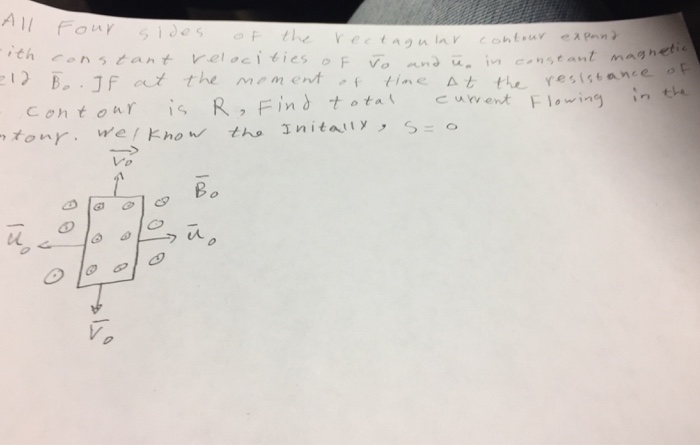 All Four sides of the rectagular contour expand
ith constant velocities of V̅o and u̅o in constant magnetic
el) B̅o. If at the moment of time Δt the resistance of
contour is R, Find total current flowing in the
ntour. We/know the Initally, S=0
V̅o
B̅o
u̅o
u̅o
V̅o